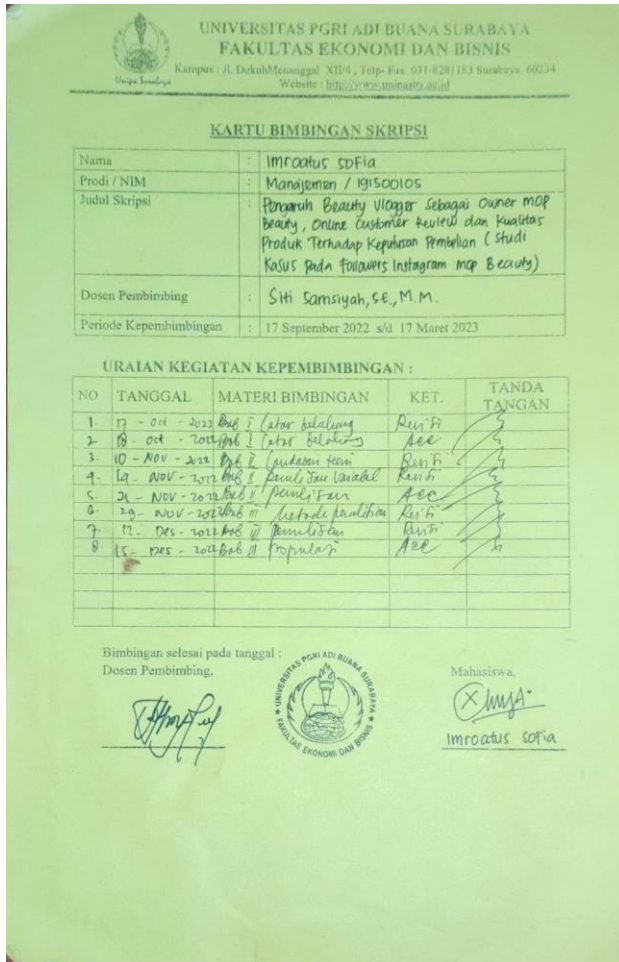 UNIVERSITAS PGRI ADI BUANA SURABAYA
FAKULTAS EKONOMI DAN BISNIS
Kampus : Jl. DukuhMenanggal XII/4 , Telp- Fax. 031-8281183 Surabaya 60234
Website : http://www.unipasby.ac.id
Unipa Surabaya
KARTU BIMBINGAN SKRIPSI
Nama : Imroatus Sofia
Prodi / NIM : Manajemen / 191500105
Judul Skripsi : Pengaruh Beauty Vlogger Sebagai Owner mop
Beauty, Online Customer Review dan Kualitas
Produk Terhadap Keputusan Pembelian ( Studi
Kasus pada Followers Instagram mop Beauty)
Dosen Pembimbing : Siti Samsiyah, S.E., M.M.
Periode Kepembimbingan : 17 September 2022 s/d 17 Maret 2023
URAIAN KEGIATAN KEPEMBIMBINGAN :
NO TANGGAL MATERI BIMBINGAN KET. TANDA TANGAN
1. 17 - Oct - 2022 Bab I Latar belakang Revisi
2. 18 - Oct - 2022 Bab I Latar belakang Acc
3. 10 - NOV - 2022 Bab II Landasan teori Revisi
4. 14 - NOV - 2022 Bab II Variabel Revisi
5. 21 - NOV - 2022 Bab II Acc
6. 29 - NOV - 2022 Bab III Metode penelitian Revisi
7. 12 - Des - 2022 Bab III Revisi
8 15 - Des - 2022 Bab III Populasi Acc
Bimbingan selesai pada tanggal :
Dosen Pembimbing, Mahasiswa,
UNIVERSITAS PGRI ADI BUANA SURABAYA
FAKULTAS EKONOMI DAN BISNIS
Imroatus Sofia